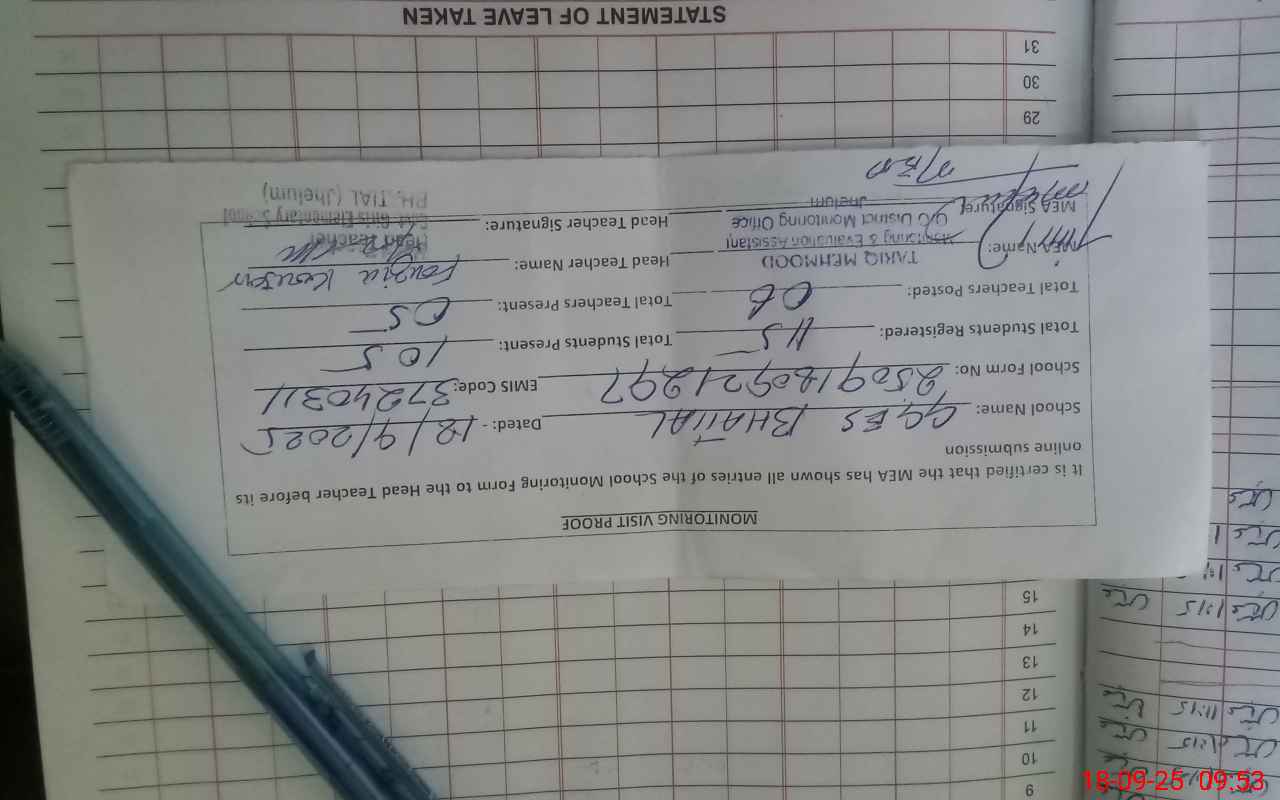 MONITORING VISIT PROOF
It is certified that the MEA has shown all entries of the School Monitoring Form to the Head Teacher before its
online submission
School Name: GGES BHATIAL Dated: - 18/9/2025
School Form No: 2509180921297 EMIS Code: 37240311
Total Students Registered: 115 Total Students Present: 105
Total Teachers Posted: 06 Total Teachers Present: 05
MEA Name: TARIQ MEHMOOD Head Teacher Name: Fougia Kousar
Monitoring & Evaluation Assistant
O/O District Monitoring Office
Jhelum
MEA Signature: Head Teacher Signature:
Head Teacher
Govt. Girls Elementary School
(Jhelum)
9
10
11
12
13
14
15
29
30
31
STATEMENT OF LEAVE TAKEN
18-09-25 09:53